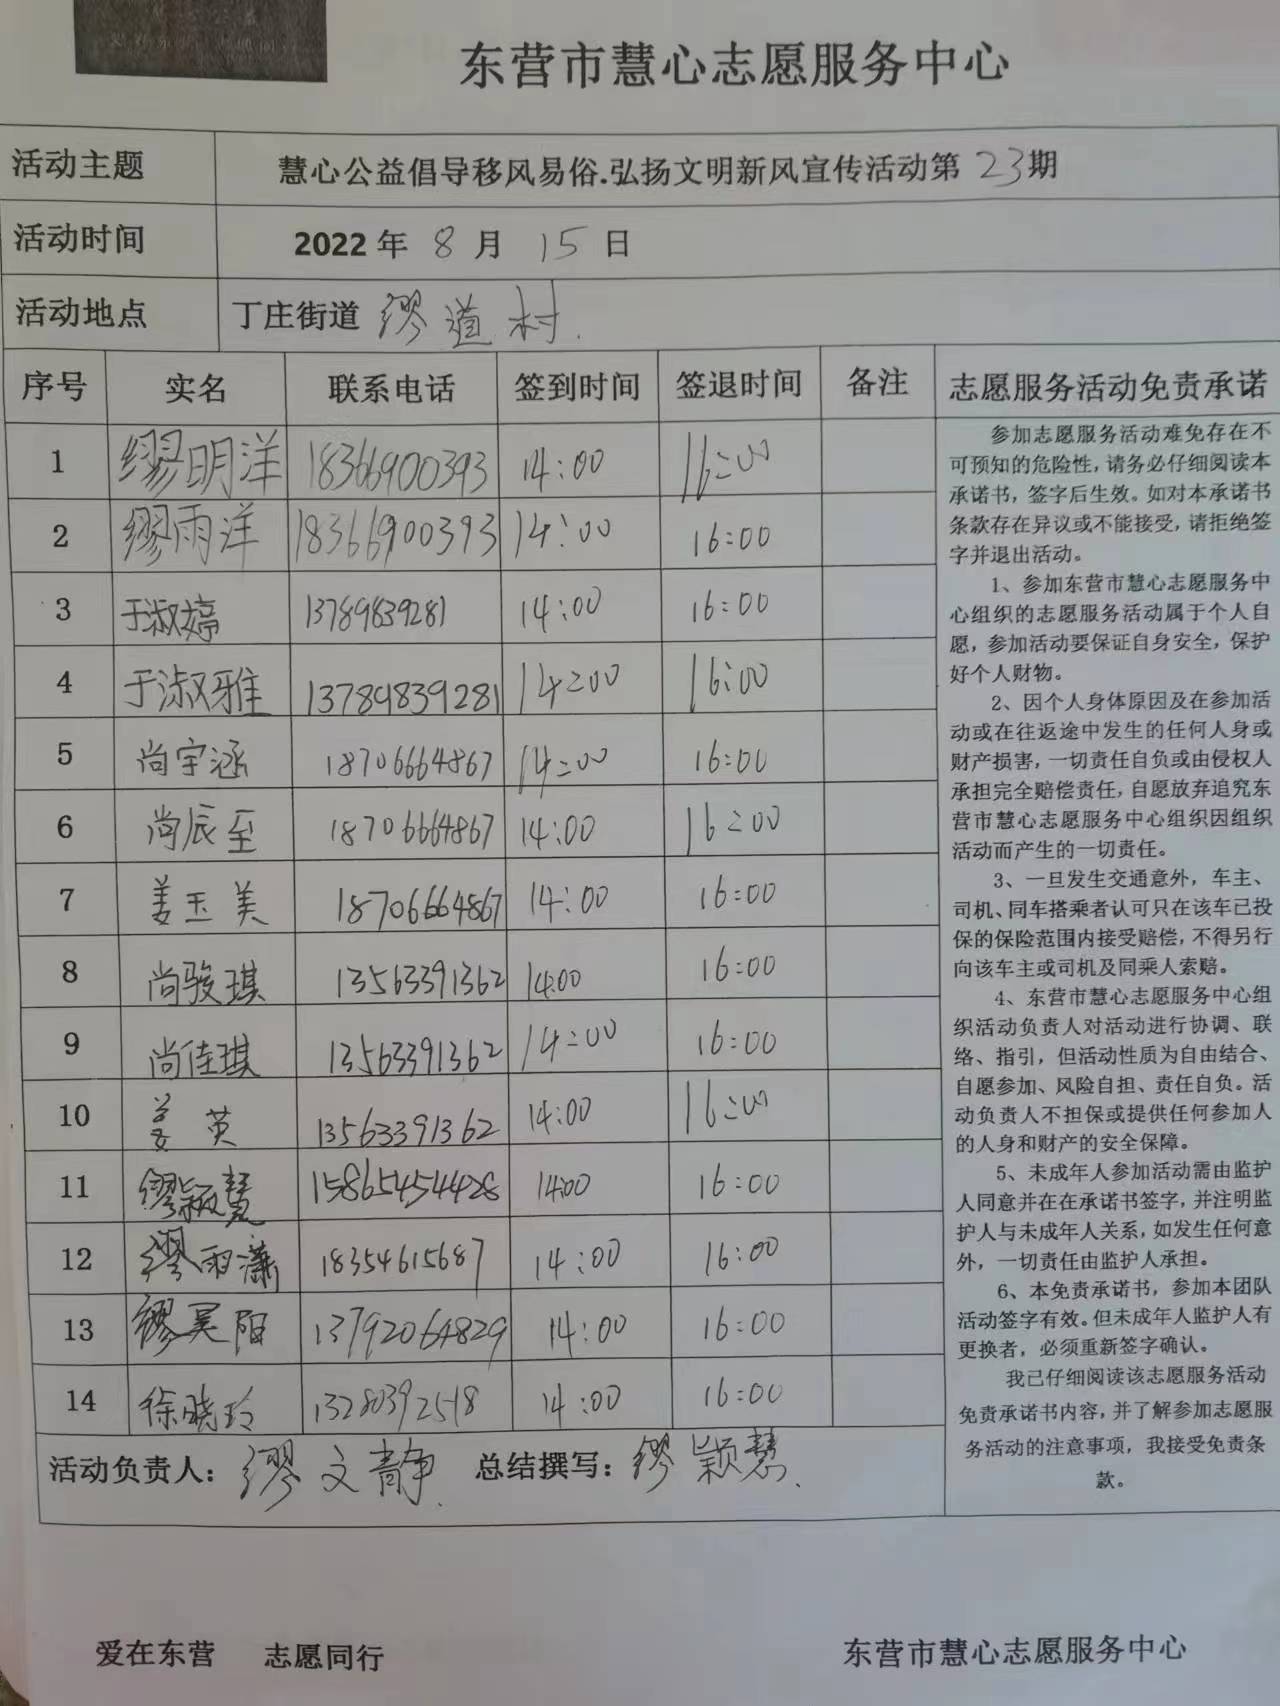 东营市慧心志愿服务中心
活动主题 慧心公益倡导移风易俗.弘扬文明新风宣传活动第23期
活动时间 2022年8月15日
活动地点 丁庄街道 缪道村.
序号 实名 联系电话 签到时间 签退时间 备注 志愿服务活动免责承诺
1 缪明洋 18366900393 14:00 16:00
2 缪雨洋 18366900393 14:00 16:00
3 于淑婷 13789839281 14:00 16:00
4 于淑雅 13789839281 14:00 16:00
5 尚宇涵 18706664867 14:00 16:00
6 尚辰至 18706664867 14:00 16:00
7 姜玉美 18706664867 14:00 16:00
8 尚骏琪 13563391362 14:00 16:00
9 尚佳琪 13563391362 14:00 16:00
10 姜英 13563391362 14:00 16:00
11 缪颖慧 15865454428 14:00 16:00
12 缪雨潇 18354615687 14:00 16:00
13 缪昊阳 13792064829 14:00 16:00
14 徐晓玲 13280392518 14:00 16:00
活动负责人：缪文静. 总结撰写：缪颖慧.
参加志愿服务活动难免存在不
可预知的危险性，请务必仔细阅读本
承诺书，签字后生效。如对本承诺书
条款存在异议或不能接受，请拒绝签
字并退出活动。
1、参加东营市慧心志愿服务中
心组织的志愿服务活动属于个人自
愿，参加活动要保证自身安全，保护
好个人财物。
2、因个人身体原因及在参加活
动或在往返途中发生的任何人身或
财产损害，一切责任自负或由侵权人
承担完全赔偿责任，自愿放弃追究东
营市慧心志愿服务中心组织因组织
活动而产生的一切责任。
3、一旦发生交通意外，车主、
司机、同车搭乘者认可只在该车已投
保的保险范围内接受赔偿，不得另行
向该车主或司机及同乘人索赔。
4、东营市慧心志愿服务中心组
织活动负责人对活动进行协调、联
络、指引，但活动性质为自由结合、
自愿参加、风险自担、责任自负。活
动负责人不担保或提供任何参加人
的人身和财产的安全保障。
5、未成年人参加活动需由监护
人同意并在在承诺书签字，并注明监
护人与未成年人关系，如发生任何意
外，一切责任由监护人承担。
6、本免责承诺书，参加本团队
活动签字有效。但未成年人监护人有
更换者，必须重新签字确认。
我已仔细阅读该志愿服务活动
免责承诺书内容，并了解参加志愿服
务活动的注意事项，我接受免责条
款。
爱在东营 志愿同行 东营市慧心志愿服务中心